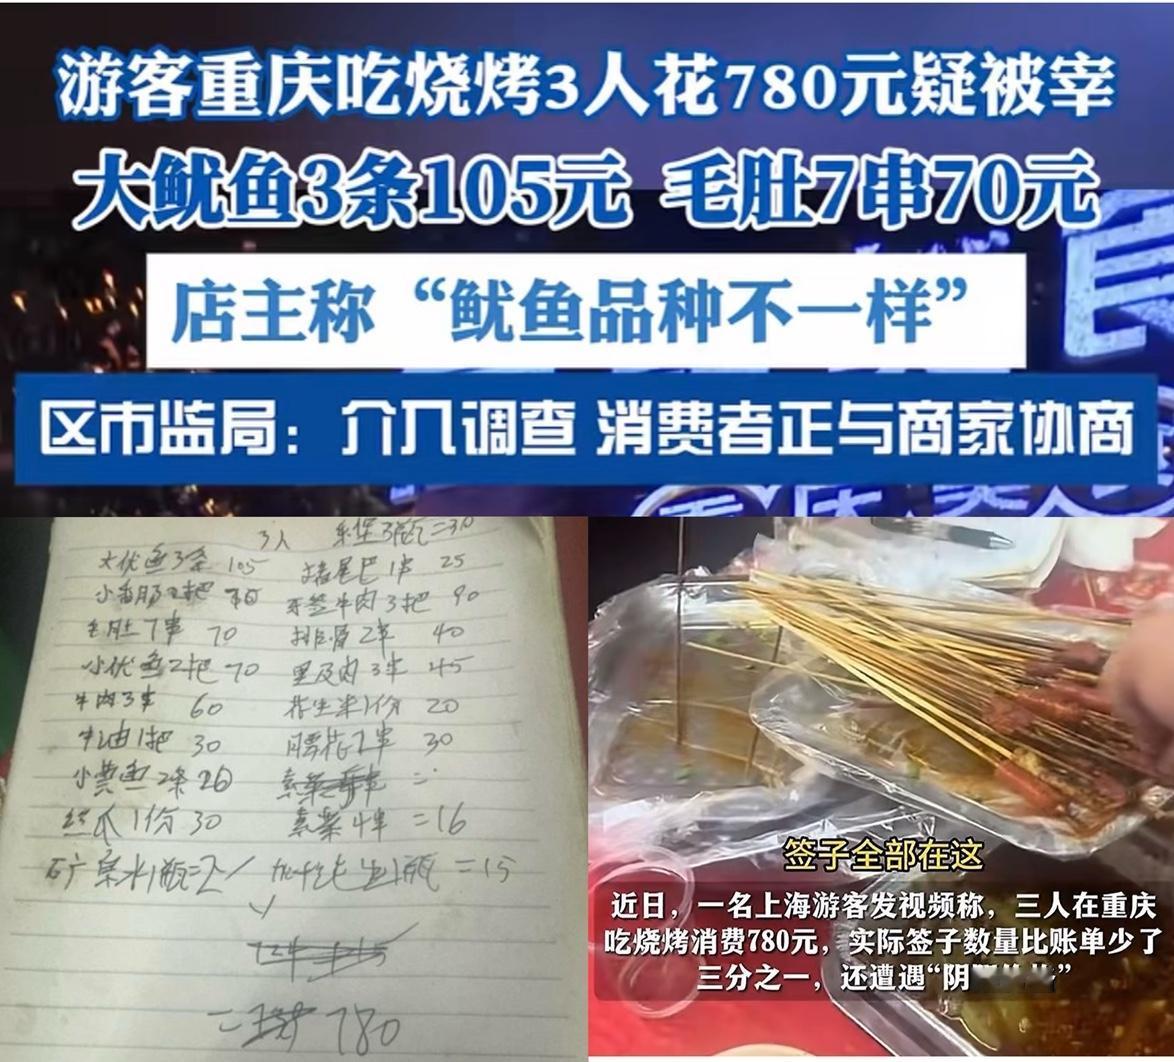 游客重庆吃烧烤3人花780元疑被宰
大鱿鱼3条105元 毛肚7串70元
店主称“鱿鱼品种不一样”
区市监局：介入调查 消费者正与商家协商
3人
=30
大优鱼3条 105 猪尾巴1串 25
小香肠2把 牙签牛肉3把 90
毛肚7串 70 排骨2串 40
小优鱼2把 70 里及肉3串 45
牛肉3串 60 花生米1份 20
牛油1把 30 腰花2串 30
小黄鱼2条 26 素菜 =
丝瓜1份 30 素菜4串 =16
矿泉水1瓶=2 1瓶=15
= 780
签子全部在这
近日，一名上海游客发视频称，三人在重庆
吃烧烤消费780元，实际签子数量比账单少了
三分之一，还遭遇“阴